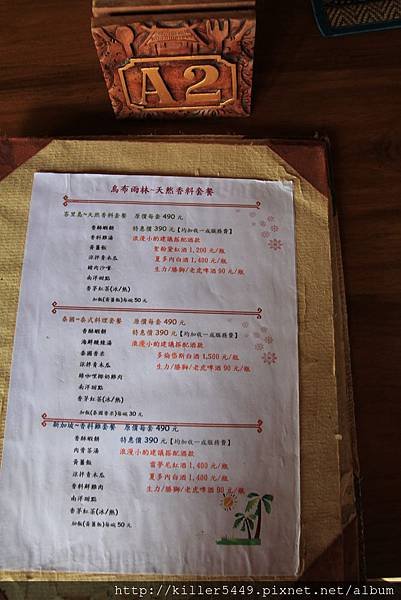 A2
烏布雨林~天然香料套餐
峇里島~天然香料套餐 原價每套 490 元
香酥蝦餅 特惠價 390 元【均加收一成服務費】
香料雞湯 浪漫小的建議搭配酒款
黃薑飯 1,200 元/瓶
涼拌青木瓜 夏多內白酒 1,400 元/瓶
豬肉沙嗲 生力/勝獅/老虎啤酒 90 元/瓶
南洋甜點
香茅紅茶(冰/熱)
加飯(黃薑飯)每碗 50 元
泰國~泰式料理套餐 原價每套 490 元
香酥蝦餅 特惠價 390 元【均加收一成服務費】
海鮮酸辣湯 浪漫小的建議搭配酒款
泰國香米 多倫岱斯白酒 1,500 元/瓶
涼拌青木瓜 生力/勝獅/老虎啤酒 90 元/瓶
綠咖哩椰奶雞肉
南洋甜點
香茅紅茶(冰/熱)
加飯(泰國香米)每碗 30 元
新加坡~香料雞套餐 原價每套 490 元
香酥蝦餅 特惠價 390 元【均加收一成服務費】
肉骨茶湯 浪漫小的建議搭配酒款
黃薑飯 雷夢尼紅酒 1,400 元/瓶
涼拌青木瓜 夏多內白酒 1,400 元/瓶
香料鮮雞肉 生力/勝獅/老虎啤酒 90 元/瓶
南洋甜點
香茅紅茶(冰/熱)
加飯(黃薑飯)每碗 50 元
http://killer5449.pixnet.net/album